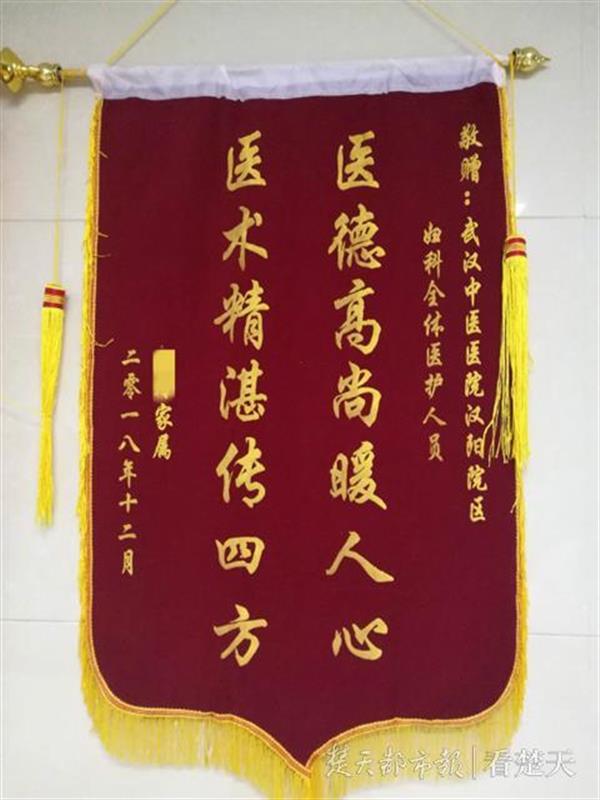 敬赠：武汉中医医院汉阳院区
妇科全体医护人员
医德高尚暖人心
医术精湛传四方
家属
二零一八年十二月
楚天都市報|看楚天